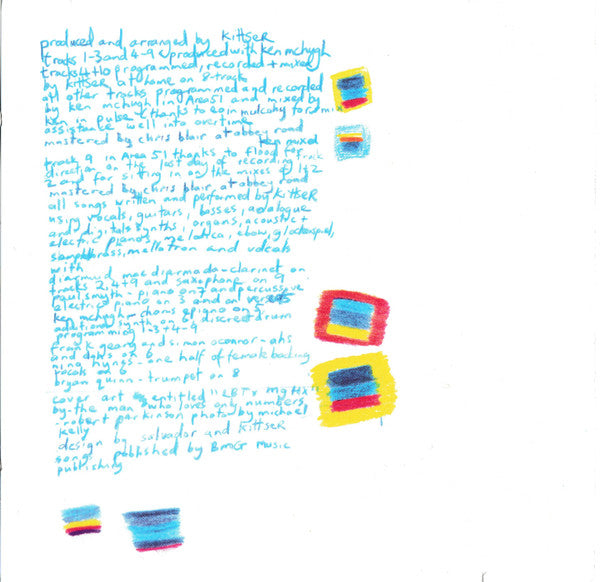 produced and arranged by KiTTSER
tracks 1-3 and 4-9 c/produced with ken mchugh
tracks 4+10 programmed, recorded + mixed
by KiTTSER at home on 8-track
all other tracks programmed and recorded
by ken mchugh in Area 51 and mixed by
ken in pulse (thanks to eoin mulcahy for mix
assistance well into overtime
mastered by chris blair at abbey road
ken mixed
track 9 in Area 51 thanks to flood for
direction on the last day of recording track
2 and for sitting in on the mixes of 1+2
mastered by chris blair, at abbey road
all songs written and performed by KiTTSER
using vocals, guitars, basses, analogue
and digital synths, organs, acoustic +
electric pianos, melodica, ebow, glockenspiel,
brass, mellotron and vocals
with
diarmuid mac diarmada - clarinet on
tracks 2, 4+9 and saxophone on 9
paul smyth - piano on 7 and percussive
electric piano on 3 and on verses
ken mchugh - chorus epiano on 5
additional synth on 6 discreet drum
programming 1-3 + 4-9
frank geary and simon oconnor - ahs
and dahs on 6
nina hynes - one half of female backing
vocals on 6
bryan quinn - trumpet on 8
cover art entitled "2BTx MgHx"
by - the man who loves only numbers
- robert parkinson photo by michael
kelly
design by salvador and KiTTSER
songs published by BMG Music
publishing